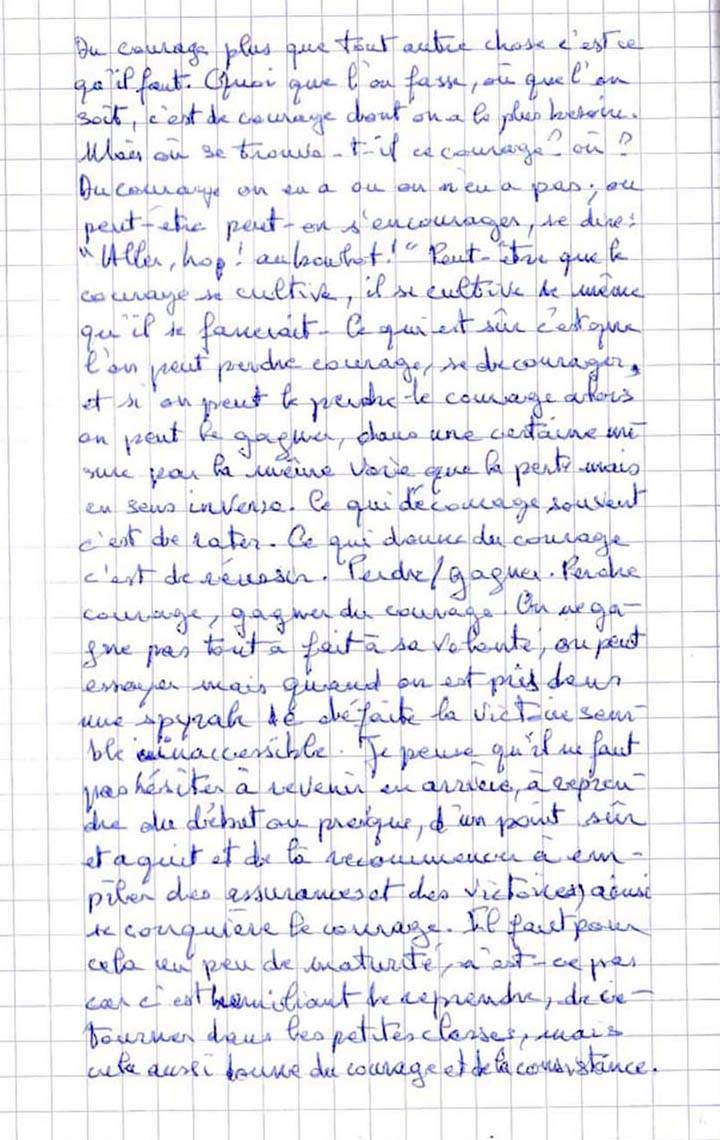 Du courage plus que tout autre chose c'est ce
qu'il faut. Quoi que l'on fasse, où que l'on
soit, c'est de courage dont on a le plus besoin.
Mais où se trouve-t-il ce courage? où?
Du courage on en a ou on n'en a pas; ou
peut-être peut-on s'encourager, se dire:
"Aller, hop! au boulot!" Peut-être que le
courage se cultive, il se cultive de même
qu'il se fanerait - Ce qui est sûr c'est que
l'on peut perdre courage, se decourager,
et si on peut le perdre le courage alors
on peut le gagner, dans une certaine me
sure par la même voie que la perte mais
en sens inverse. Ce qui décourage souvent
c'est de rater. Ce qui donne du courage
c'est de réussir. Perdre/gagner. Perdre
courage, gagner du courage. On ne ga-
gne pas tout à fait à sa volonté, on peut
essayer mais quand on est pris dans
une spyrale de défaite la victoire sem
ble inaccessible. Je pense qu'il ne faut
pas hésiter à revenir en arrière, à repren-
dre du début ou presque, d'un point sûr
et aquit et de là recommencer à em-
piler des assurances et des victoires, ainsi
se conquière le courage. Il faut pour
cela un peu de maturité, n'est-ce pas
car c'est humiliant de reprendre, de re-
tourner dans les petites classes, mais
cela aussi donne du courage et de la consistance.